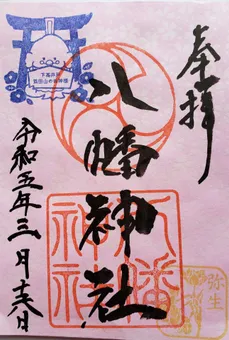 奉拝
八幡神社
八幡
神社
令和五年三月十六日
弥生